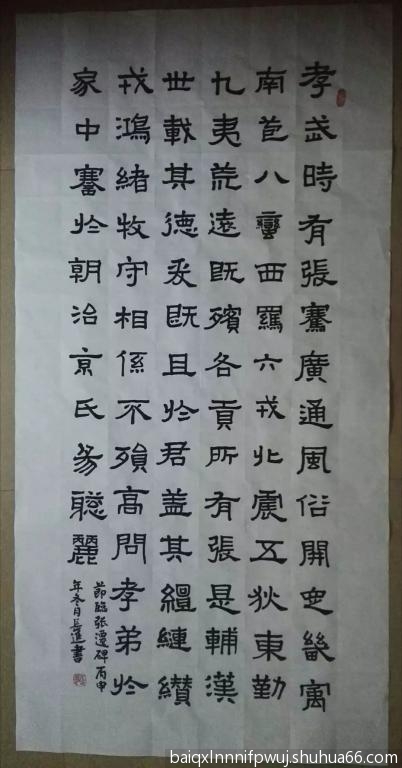 孝武時有張騫廣通風俗開定畿寓
南苞八蠻西羈六戎北震五狄東勤
九夷荒遠既殯各貢所有張是輔漢
世載其德爰既且於君蓋其繵縺纘
戎鴻緒牧守相係不殞高問孝弟於
家中謇於朝治京氏易聰麗
節臨張遷碑丙申
年冬月長進書
baiqxlnnnifpwuj.shuhua66.com